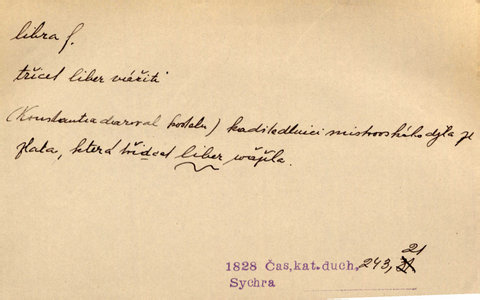 libra f.
třicet liber vážiti
(Konstantia daroval kostelu) kadidelnici mistrovského dýla ze
zlata, která třidcet liber wážila.
21
1828 Čas.kat.duch. 243, 31
Sychra